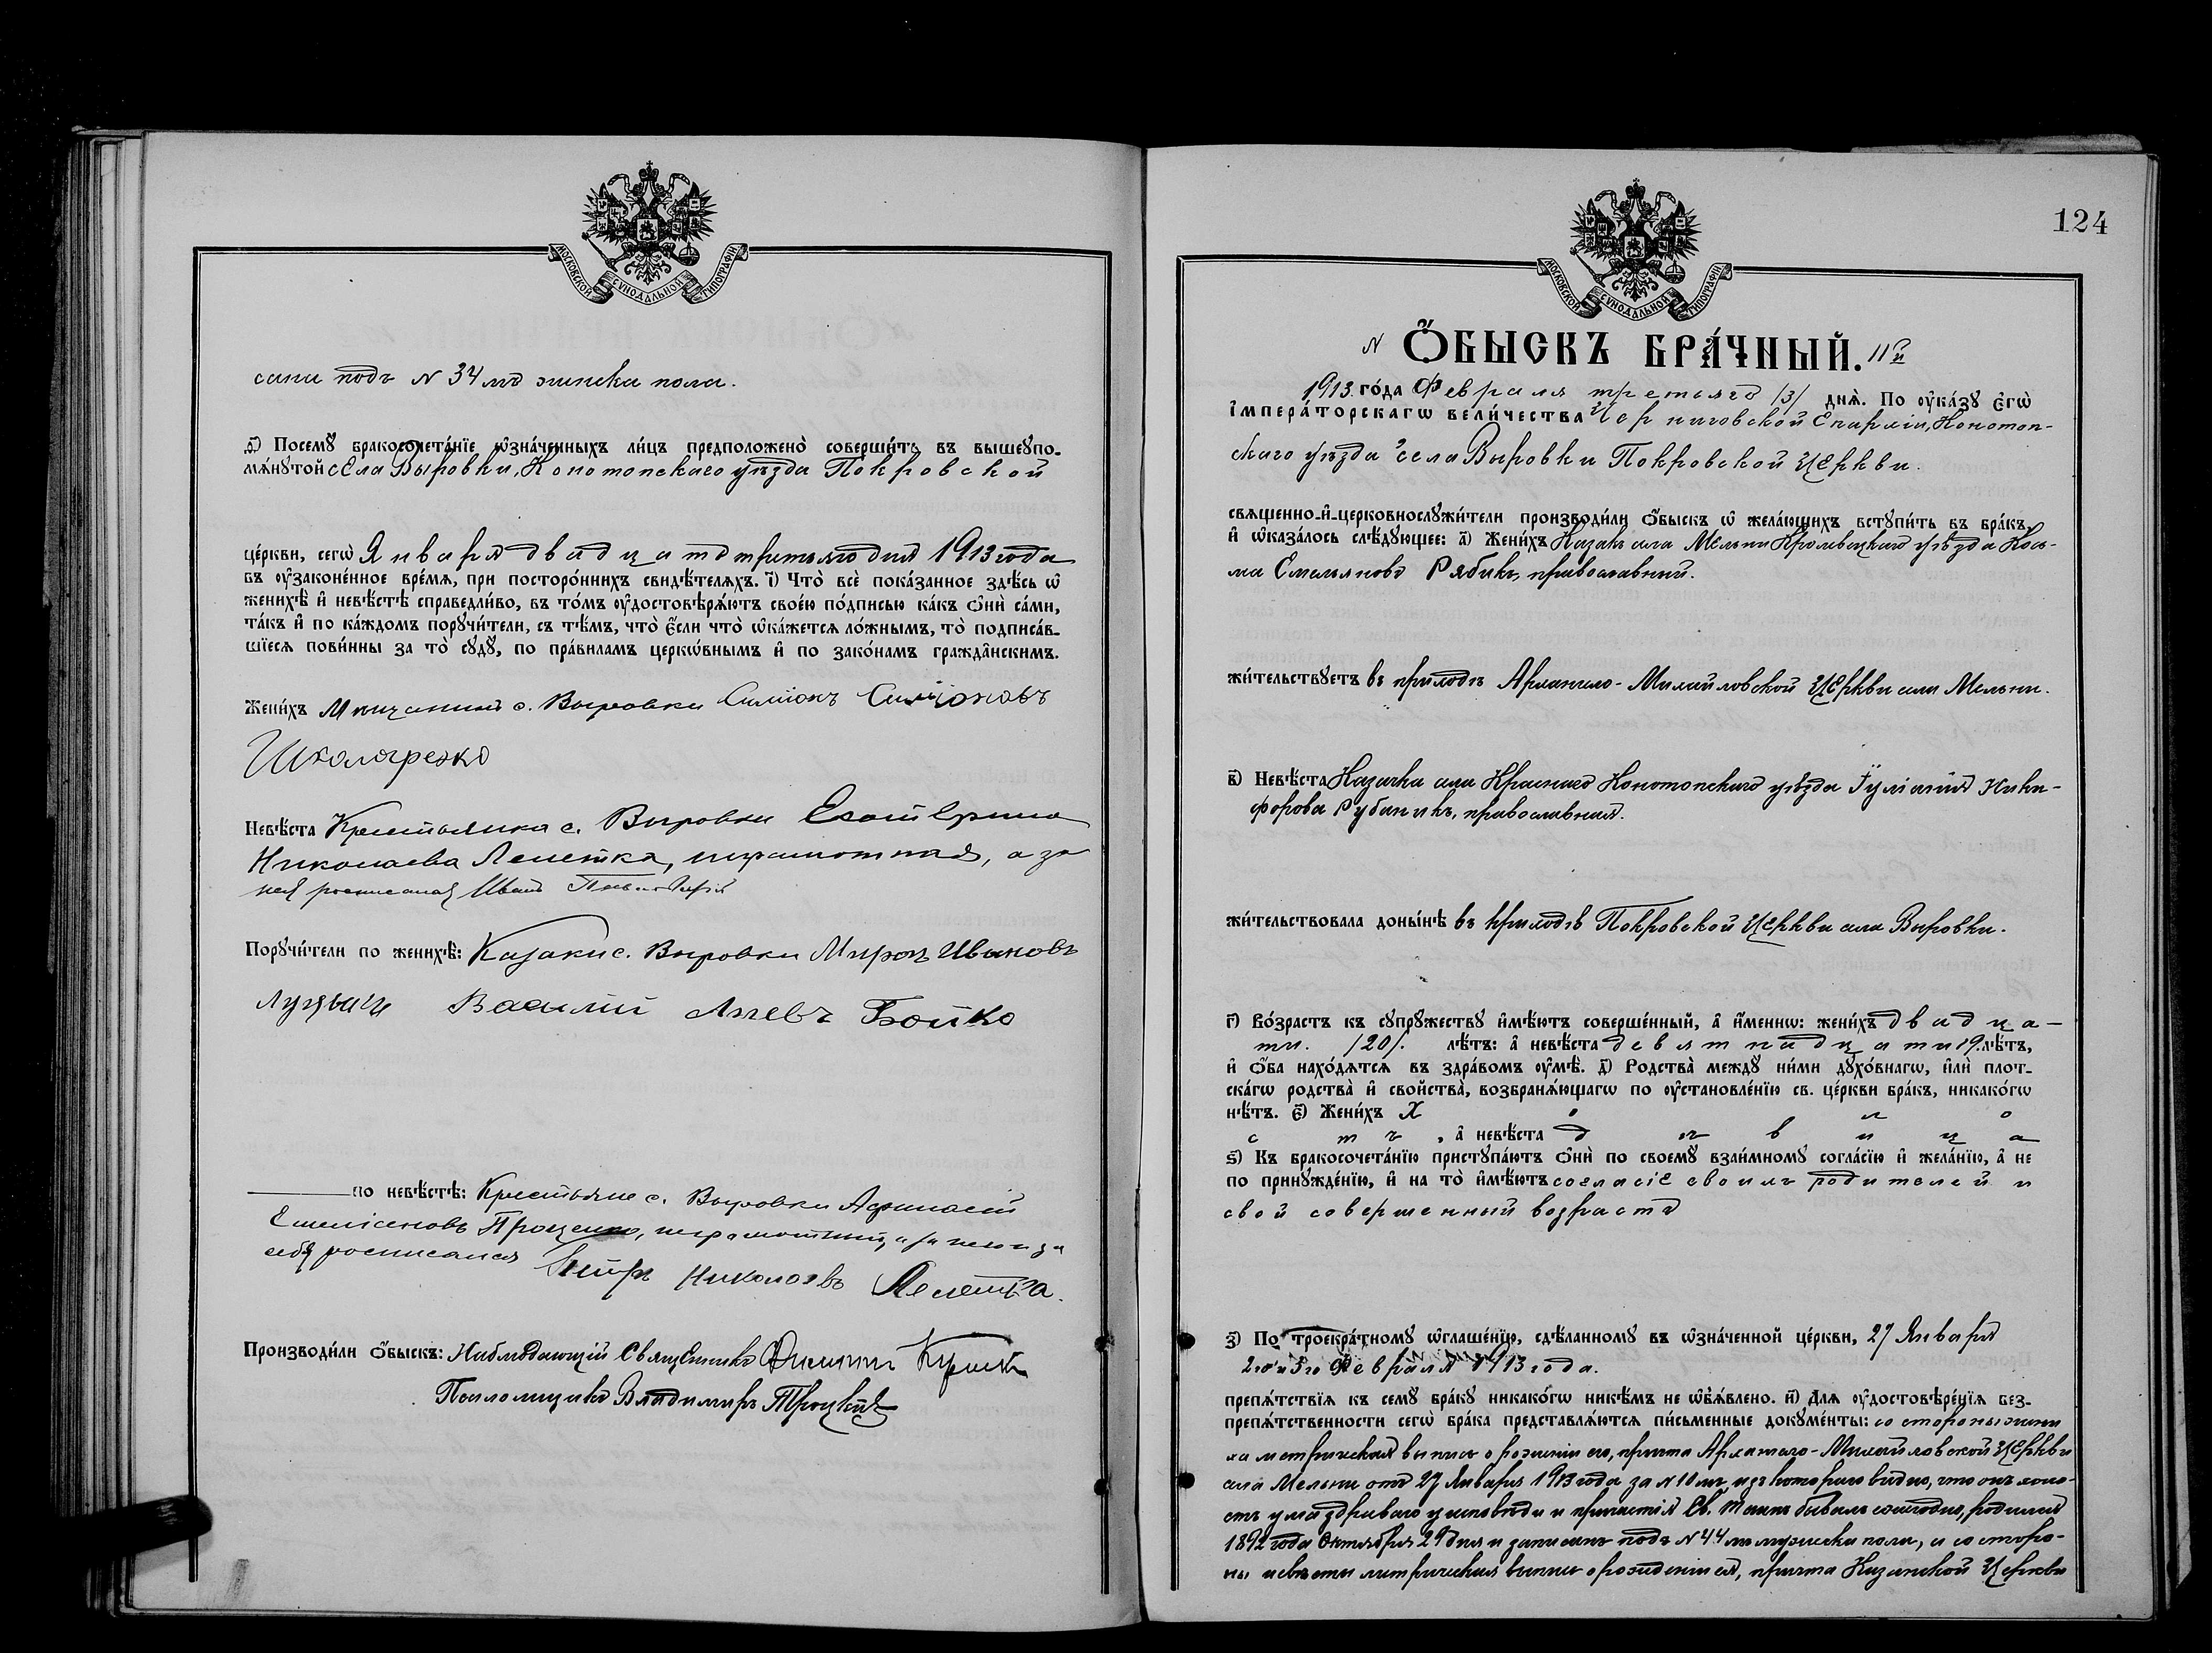 МОСКОВСКОЙ СѴНОДАЛЬНОЙ ТИПОГРАФІИ
сана подъ N 34 мъ женска пола.
д҃) Посемꙋ̀ бракосочета́нїе ѡ҆зна́ченныхъ ли́цъ предположено̀ соверши́ть въ вышеꙋпо-
мѧ́нꙋтой села Выровки, Конотопскаго уѣзда Покровской
це́ркви, сегѡ̀ Января двадцать третьяго дня 1913 года
въ ᲂу҆зако́ненное вре́мѧ, при посторо́ннихъ свидѣ́телѧхъ. і҃) Что̀ всѐ пока́занное здѣ́сь ѡ҆
женихѣ̀ и҆ невѣ́стѣ справедли́во, въ то́мъ ᲂу҆достовѣрѧ́ютъ свое́ю по́дписью ка́къ ѻ҆нѝ са́ми,
та́къ и҆ по ка́ждомъ порꙋчи́тели, съ тѣ́мъ, что̀ є҆́сли что̀ ѡ҆ка́жетсѧ ло́жнымъ, то̀ подписа́в-
шїесѧ пови́нны за то̀ сꙋдꙋ̀, по пра́виламъ церкѡ́внымъ и҆ по зако́намъ гражда̂нскимъ.
Жени́хъ Мѣщанинъ с. Выровки Симіонъ Симіоновъ
Шкляренко
Невѣ́ста Крестьянка с. Выровки Екатерина
Николаева Лепетка, неграмотная, а за
нея росписался Иванъ
Порꙋчи́тели по женихѣ̀: Казаки с. Выровки Миронъ Ивановъ
Василій Бойко
по невѣ́стѣ: Крестьяне с. Выровки Афанасій
Емеліановъ Проценко, неграмотный, а за него и за
себя росписался Петръ Николаевъ Лепетка.
Производи́ли ѻ҆́быскъ: Наблюдающій Священникъ
Псаломщикъ Владимиръ Троцкій
124
МОСКОВСКОЙ СѴНОДАЛЬНОЙ ТИПОГРАФІИ
N ѺБЫСКЪ БРА́ЧНЫЙ. 11й
1913 го́да Февраля третьяго /3/ днѧ̀. По ᲂу҆ка́зꙋ є҆гѡ̀
і҆мпера́торскагѡ вели́чества Черниговской Епархіи, Конотоп-
скаго уѣзда села Выровки Покровской Церкви.
свѧщенно-и҆-церковнослꙋжи́тели производи́ли ѻ҆́быскъ ѡ҆ жела́ющихъ встꙋпи́ть въ бра́къ,
и҆ ѡ҆каза́лось слѣ́дꙋющее: а҃) Жени́хъ Казакъ села Мельни Кролевецкаго уѣзда Кось-
ма Емельяновъ Рябикъ, православный.
жи́тельствꙋетъ въ приходѣ Архангело-Михайловской Церкви села Мельни.
в҃) Невѣ́ста Казачка села Краснаго Конотопскаго уѣзда Іуліанія Ники-
форова Рубаникъ, православная.
жи́тельствовала доны́нѣ въ приходѣ Покровской Церкви села Выровки.
г҃) Во́зрастъ къ сꙋпрꙋжествꙋ и҆мѣ́ютъ соверше́нный, а҆ и҆́меннѡ: жени́хъ двадца-
ти. /20/. лѣ́тъ: а҆ невѣ́ста девятнадцати 19. лѣ́тъ,
и҆ ѻ҆́ба нахо́дѧтсѧ въ здра́вомъ ᲂу҆мѣ̀. д҃) Родства̀ междꙋ ни́ми дꙋхо́внагѡ, и҆лѝ плот-
ска́гѡ родства̀ и҆ свойства̀, возбранѧ́ющагѡ по ᲂу҆становле́нїю св. це́ркви бра́къ, никако́гѡ
нѣ́тъ. є҃) Жени́хъ Холо
стъ, а҆ невѣ́ста дѣвица
ѕ҃) Къ бракосочета́нїю пристꙋпа́ютъ ѻ҆нѝ по своемꙋ̀ взаи́мномꙋ согла́сїю и҆ жела́нїю, а҆ не
по принꙋжде́нїю, и҆ на то̀ и҆мѣ́ютъ согласіе своихъ родителей и
свой совершенный возрастъ
з҃) По троекра́тномꙋ ѡ҆глаше́нїю, сдѣ́ланномꙋ въ ѡ҆зна́ченной це́ркви, 27 Января
2го и 3го Февраля 1913 года.
препѧ́тствїѧ къ семꙋ̀ бра́кꙋ никако́гѡ никѣ́мъ не ѡ҆б̾ѧ́влено. и҃) Длѧ ᲂу҆достовѣре́нїѧ без-
препѧ́тственности сегѡ̀ бра́ка представлѧ́ютсѧ пи́сьменные докꙋме́нты: со стороны жени
ха метрическая выпись о рожденіи его, причта Архангело-Михайловской Церкви
села Мельни отъ 27 Января 1913 года за N 10 мъ, изъ котораго видно, что онъ холо-
стъ ума здраваго у исповѣди и причастія Св. Таинъ бывалъ ежегодно, родился
1892 года Октября 29 дня и записанъ подъ N 44 мъ мужска пола, и со сторо-
ны невѣсты метрическая выпись о рожденіи ея, причта Казанской Церкви